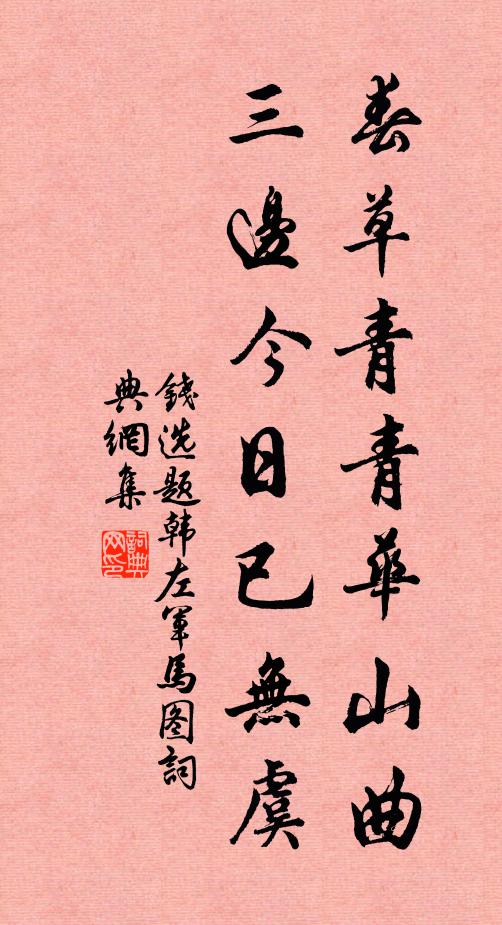 春草青青華山曲
三邊今日已無虞
錢选題韩左軍馬图詞
典網集
詞典
网印